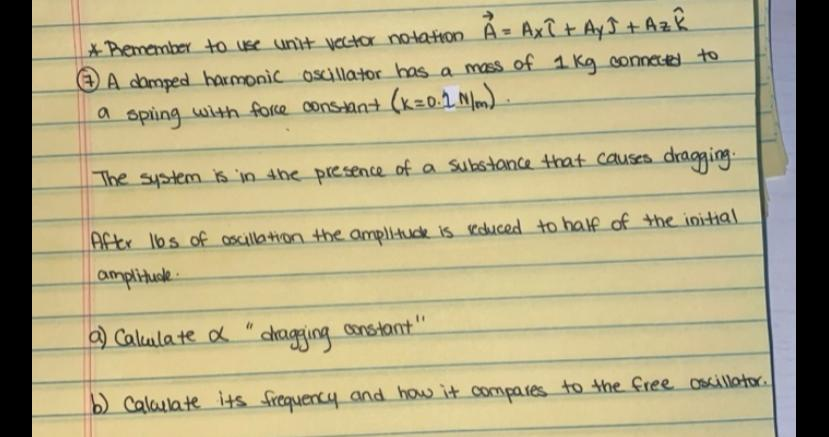 * Remember to use unit vector notation A⃗ = Axî + Ayĵ + Azk̂
⑦ A damped harmonic oscillator has a mass of 1 Kg connected to
a spring with force constant (K=0.1 N/m).
The system is in the presence of a substance that causes dragging.
After 10s of oscillation the amplitude is reduced to half of the initial
amplitude.
a) Calculate α "dragging constant"
b) Calculate its frequency and how it compares to the free oscillator.